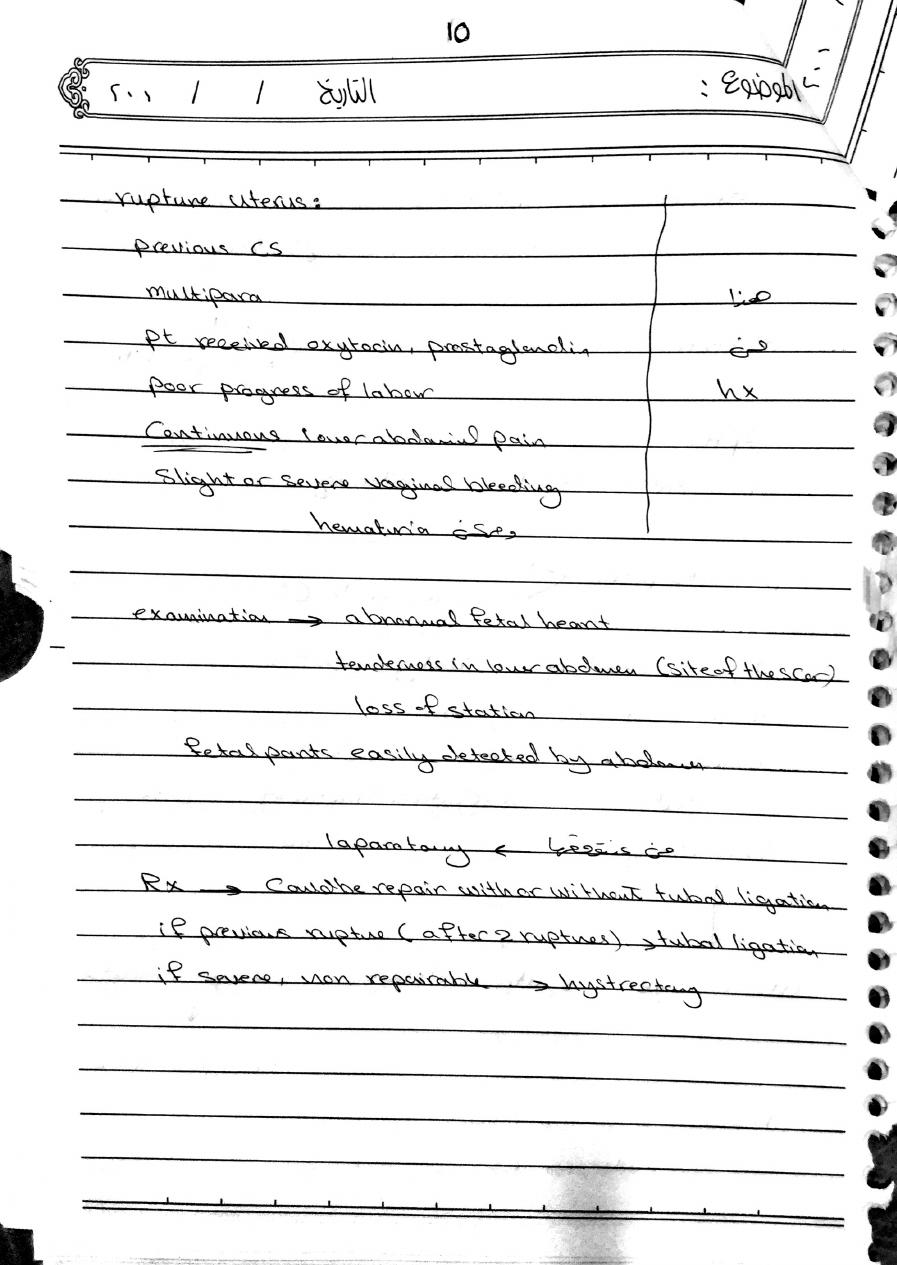 10
الموضوع : التاريخ / / ٢٠٠١
rupture uterus:
previous CS
multipara هنا
pt received oxytocin, prostaglandin من
poor progress of labour hx
Continuous lower abdominal pain
Slight or severe vaginal bleeding
وممكن hematuria
examination → abnormal fetal heart
tenderness in lower abdomen (site of the scar)
loss of station
fetal parts easily detected by abdomen
laparatomy ←
Rx → Could be repair with or without tubal ligation
if previous rupture (after 2 ruptures) → tubal ligation
if severe, non repairable → hystrectomy